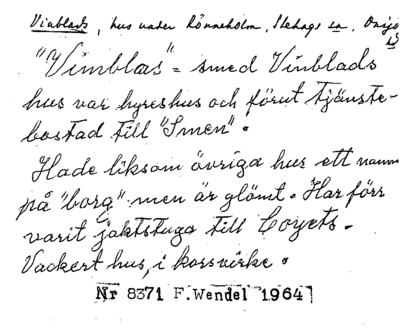 Vinblads, hus under Rönneholm, Stehags sn, Onsjö
hd
"Vimblas" = smed Vinblads
hus var hyreshus och förut tjänste-
bostad till "Smen".
Hade liksom övriga hus ett namn
på "borg" men är glömt. Har förr
varit jaktstuga till Coyets.
Vackert hus, i korsvirke.
Nr 8371 F.Wendel 1964